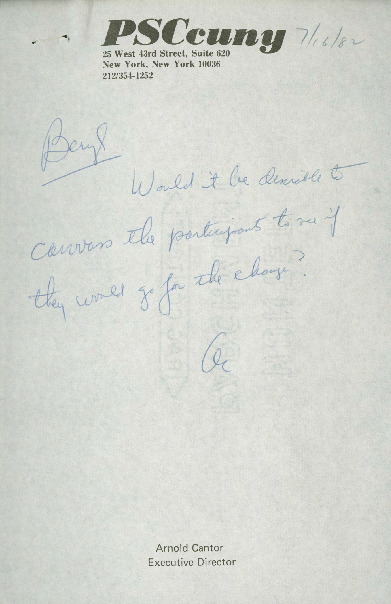 PSCcuny 7/16/82
25 West 43rd Street, Suite 620
New York, New York 10036
212/354-1252
Beryl
Would it be desirable to
canvass the participants to see if
they would go for the change?
Ac
Arnold Cantor
Executive Director